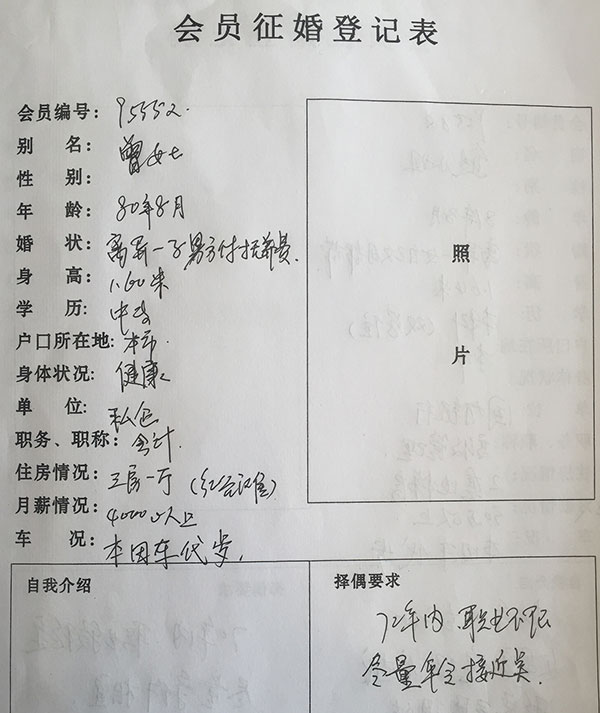 会员征婚登记表
会员编号: 95552.
别 名: 曾女士
性 别:
年 龄: 80年8月
婚 状: 离异一子男方付抚养费.
身 高: 1.60米
学 历: 中专
户口所在地: 本市.
身体状况: 健康
单 位: 私企
职务、职称: 会计.
住房情况: 三房一厅
月薪情况: 4000以上
车 况: 本田车代步.
照
片
自我介绍
择偶要求
72年内 职业不限
尽量年令接近类.